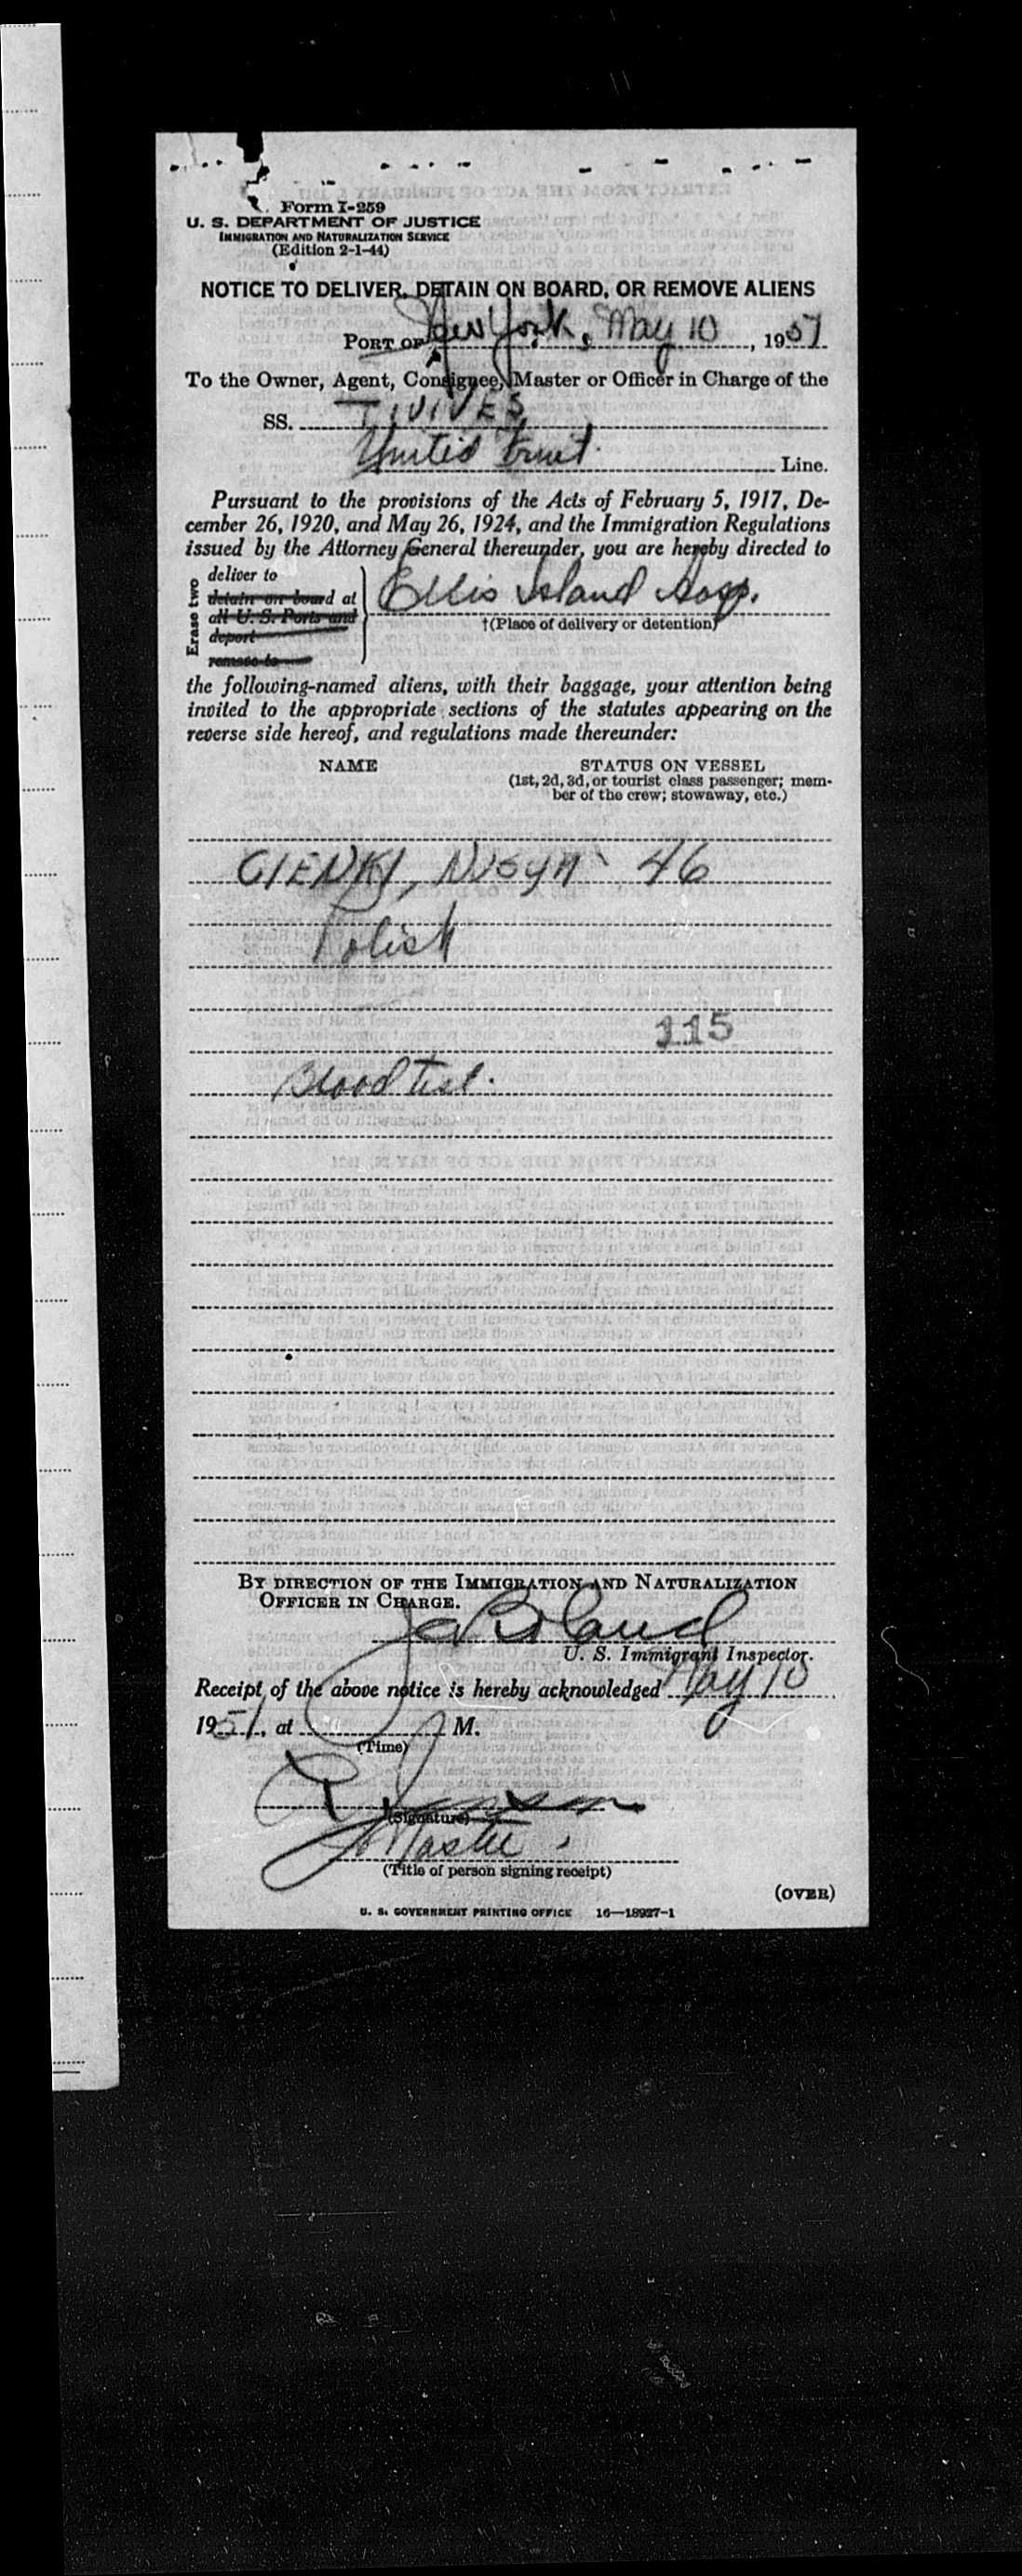 Form I-259
U. S. DEPARTMENT OF JUSTICE
IMMIGRATION AND NATURALIZATION SERVICE
(Edition 2-1-44)
NOTICE TO DELIVER, DETAIN ON BOARD, OR REMOVE ALIENS
PORT OF New York, May 10, 1951
To the Owner, Agent, Consignee, Master or Officer in Charge of the
SS. TIVIVES
United Fruit Line.
Pursuant to the provisions of the Acts of February 5, 1917, De-
cember 26, 1920, and May 26, 1924, and the Immigration Regulations
issued by the Attorney General thereunder, you are hereby directed to
Erase two
deliver to
detain on board at
all U. S. Ports and
deport
remove to
Ellis Island Hosp.
†(Place of delivery or detention)
the following-named aliens, with their baggage, your attention being
invited to the appropriate sections of the statutes appearing on the
reverse side hereof, and regulations made thereunder:
NAME STATUS ON VESSEL
(1st, 2d, 3d, or tourist class passenger; mem-
ber of the crew; stowaway, etc.)
CIENKI, 46
Polish
115
Blood test.
BY DIRECTION OF THE IMMIGRATION AND NATURALIZATION
OFFICER IN CHARGE.
Boland
U. S. Immigrant Inspector.
Receipt of the above notice is hereby acknowledged May 10
1951, at M.
(Time)
(Signature)
Master
(Title of person signing receipt)
(OVER)
U. S. GOVERNMENT PRINTING OFFICE 16—18927-1